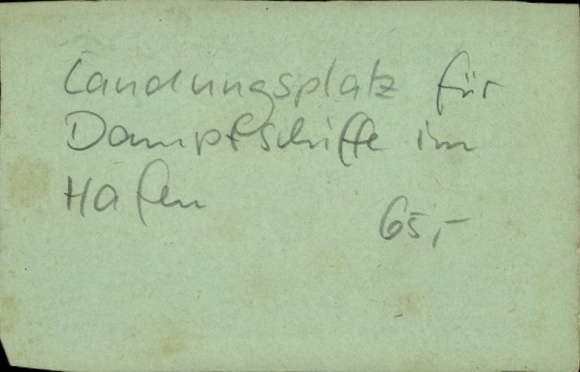 Landungsplatz für
Dampfschiffe im
Hafen
65,-